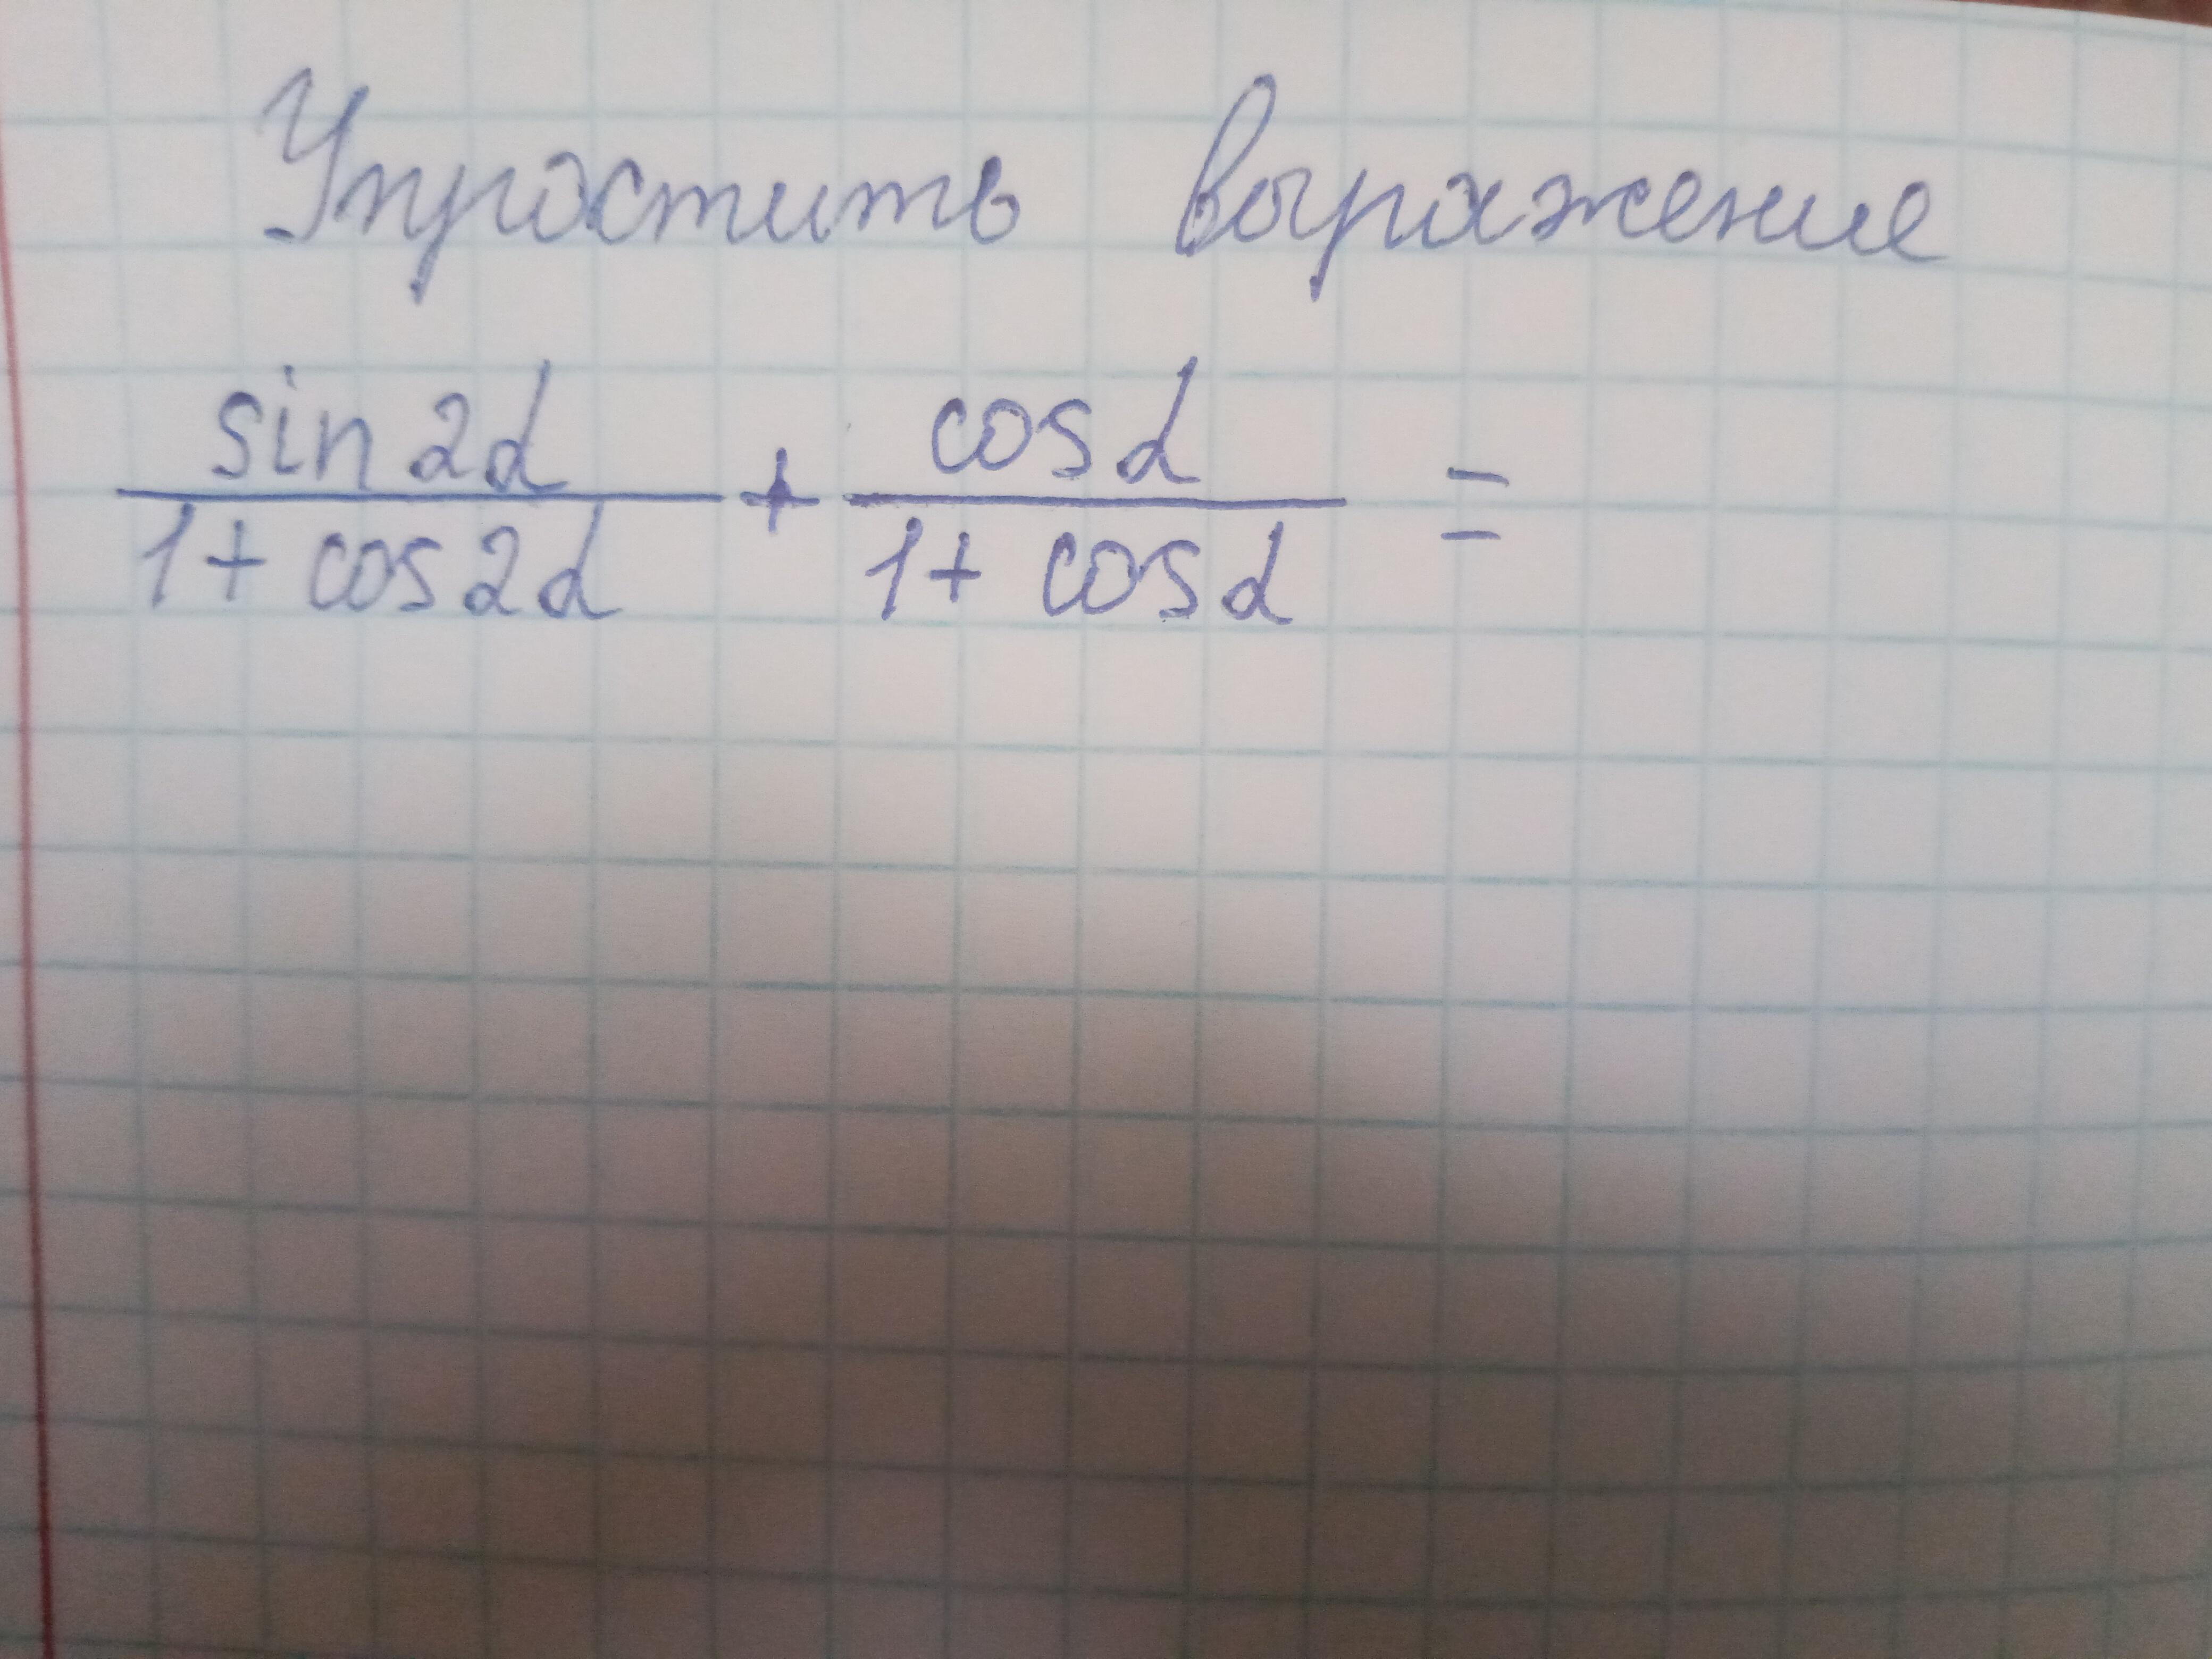 Упростить выражение
sin 2α / 1 + cos 2α + cos α / 1 + cos α =